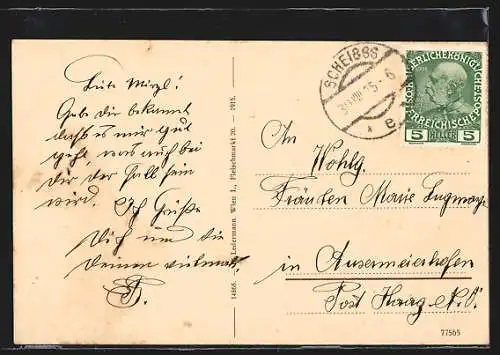 Liebe Mirzl!
Gebe dir bekannt
daß es mir gut
geht, was auch bei
dir der Fall sein
wird. Ich Grüße
Dich und die
Deinen vielmals
14868. Ledermann Wien I., Fleischmarkt 20. — 1915.
SCHEIBBS
15-6
a
KAISERLICHE KÖNIGLICHE
ÖSTERREICHISCHE POST
5 HELLER 5
An Wohlg.
Fräulein Marie Lugmayr
in Ausermeierhofen
Post Haag N.Ö.
77565